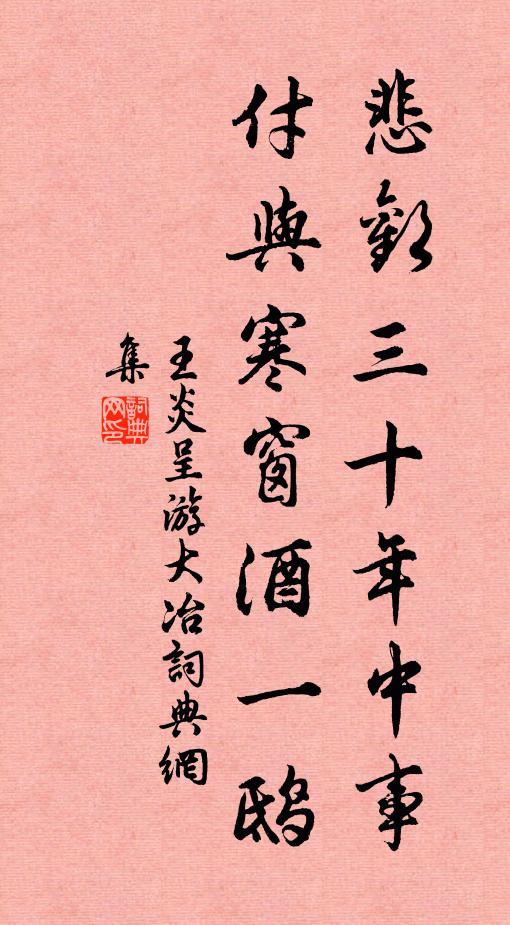 悲歡三十年中事
付與寒窗酒一鴟
王炎呈游大冶詞典網
集
詞典網印